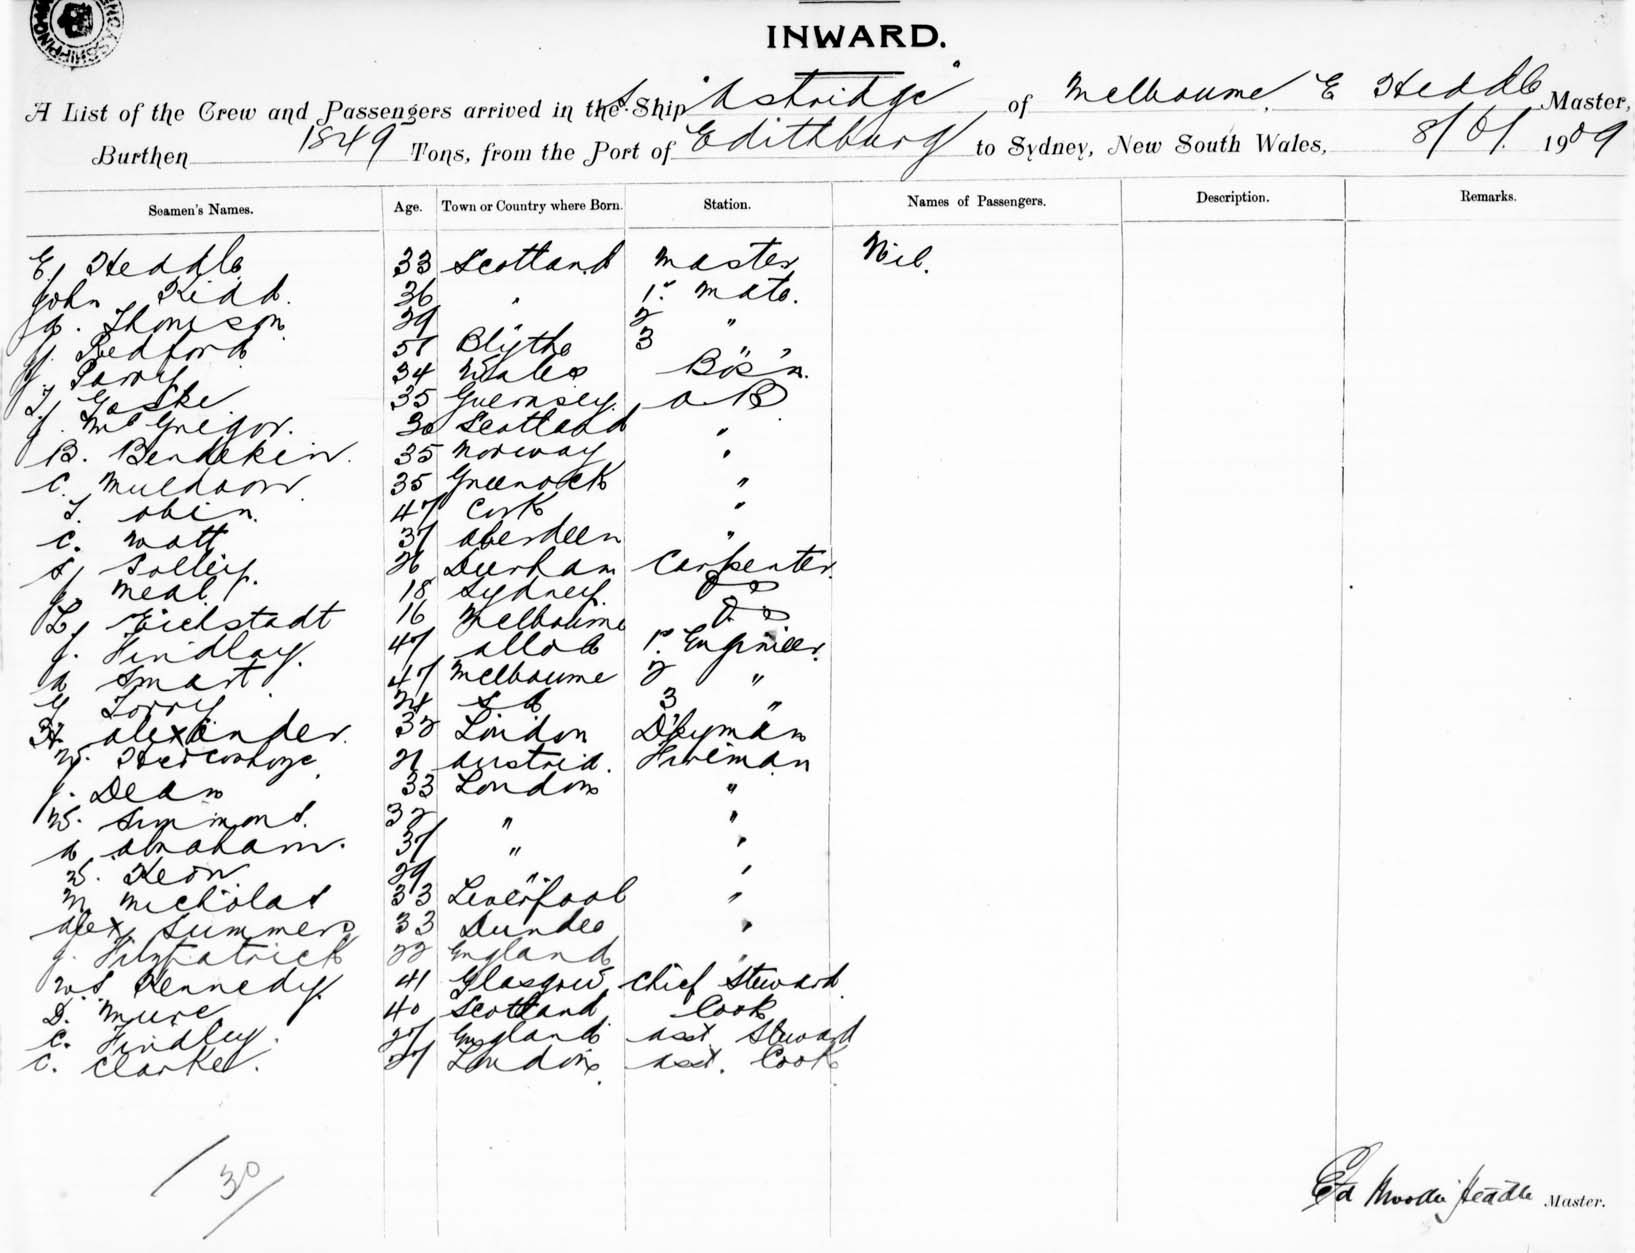 INWARD.
A List of the Crew and Passengers arrived in the S. Ship "Astridge" of Melbourne, E Heddle Master,
Burthen 1849 Tons, from the Port of Edithburg to Sydney, New South Wales, 8/6/ 1909
Seamen's Names. Age. Town or Country where Born. Station. Names of Passengers. Description. Remarks.
E Heddle 33 Scotland Master Nil.
John Kidd. 36 " 1st Mate.
Thomson 29 2 "
J. Bedford 51 Blythe 3 "
Parry 34 Wales Bos'n.
35 Guernsey. A B
J. McGregor. 30 Scotland "
B. Bendekin. 35 Norway "
C. Muldoon. 35 Greenock "
T. Obin. 47 Cork "
C. Watt 37 Aberdeen "
S. 26 Durham Carpenter.
Meal. 18 Sydney.
L. Eichstadt 16 Melbourne
J. Findlay. 47 Alloa 1st Engineer.
A Smart. 47 Melbourne 2 "
G Torry 24 3 "
H. Alexander. 32 London D'kyman
W. 21 Austria. Fireman
J. Dean 33 London "
W. Simmons. 32 " "
A. Abraham. 37 " "
W. Keon 29 " "
M Nicholas 33 Liverpool "
Alex Summers 33 Dundee "
J. Fitzpatrick 22 England "
W S Kennedy. 41 Glasgow Chief Steward
D. Mure 40 Scotland Cook
C. Findley. 27 England Asst. Steward
C. Clarke. 27 London. Asst. Cook
30
Ed Moodie Heddle Master.